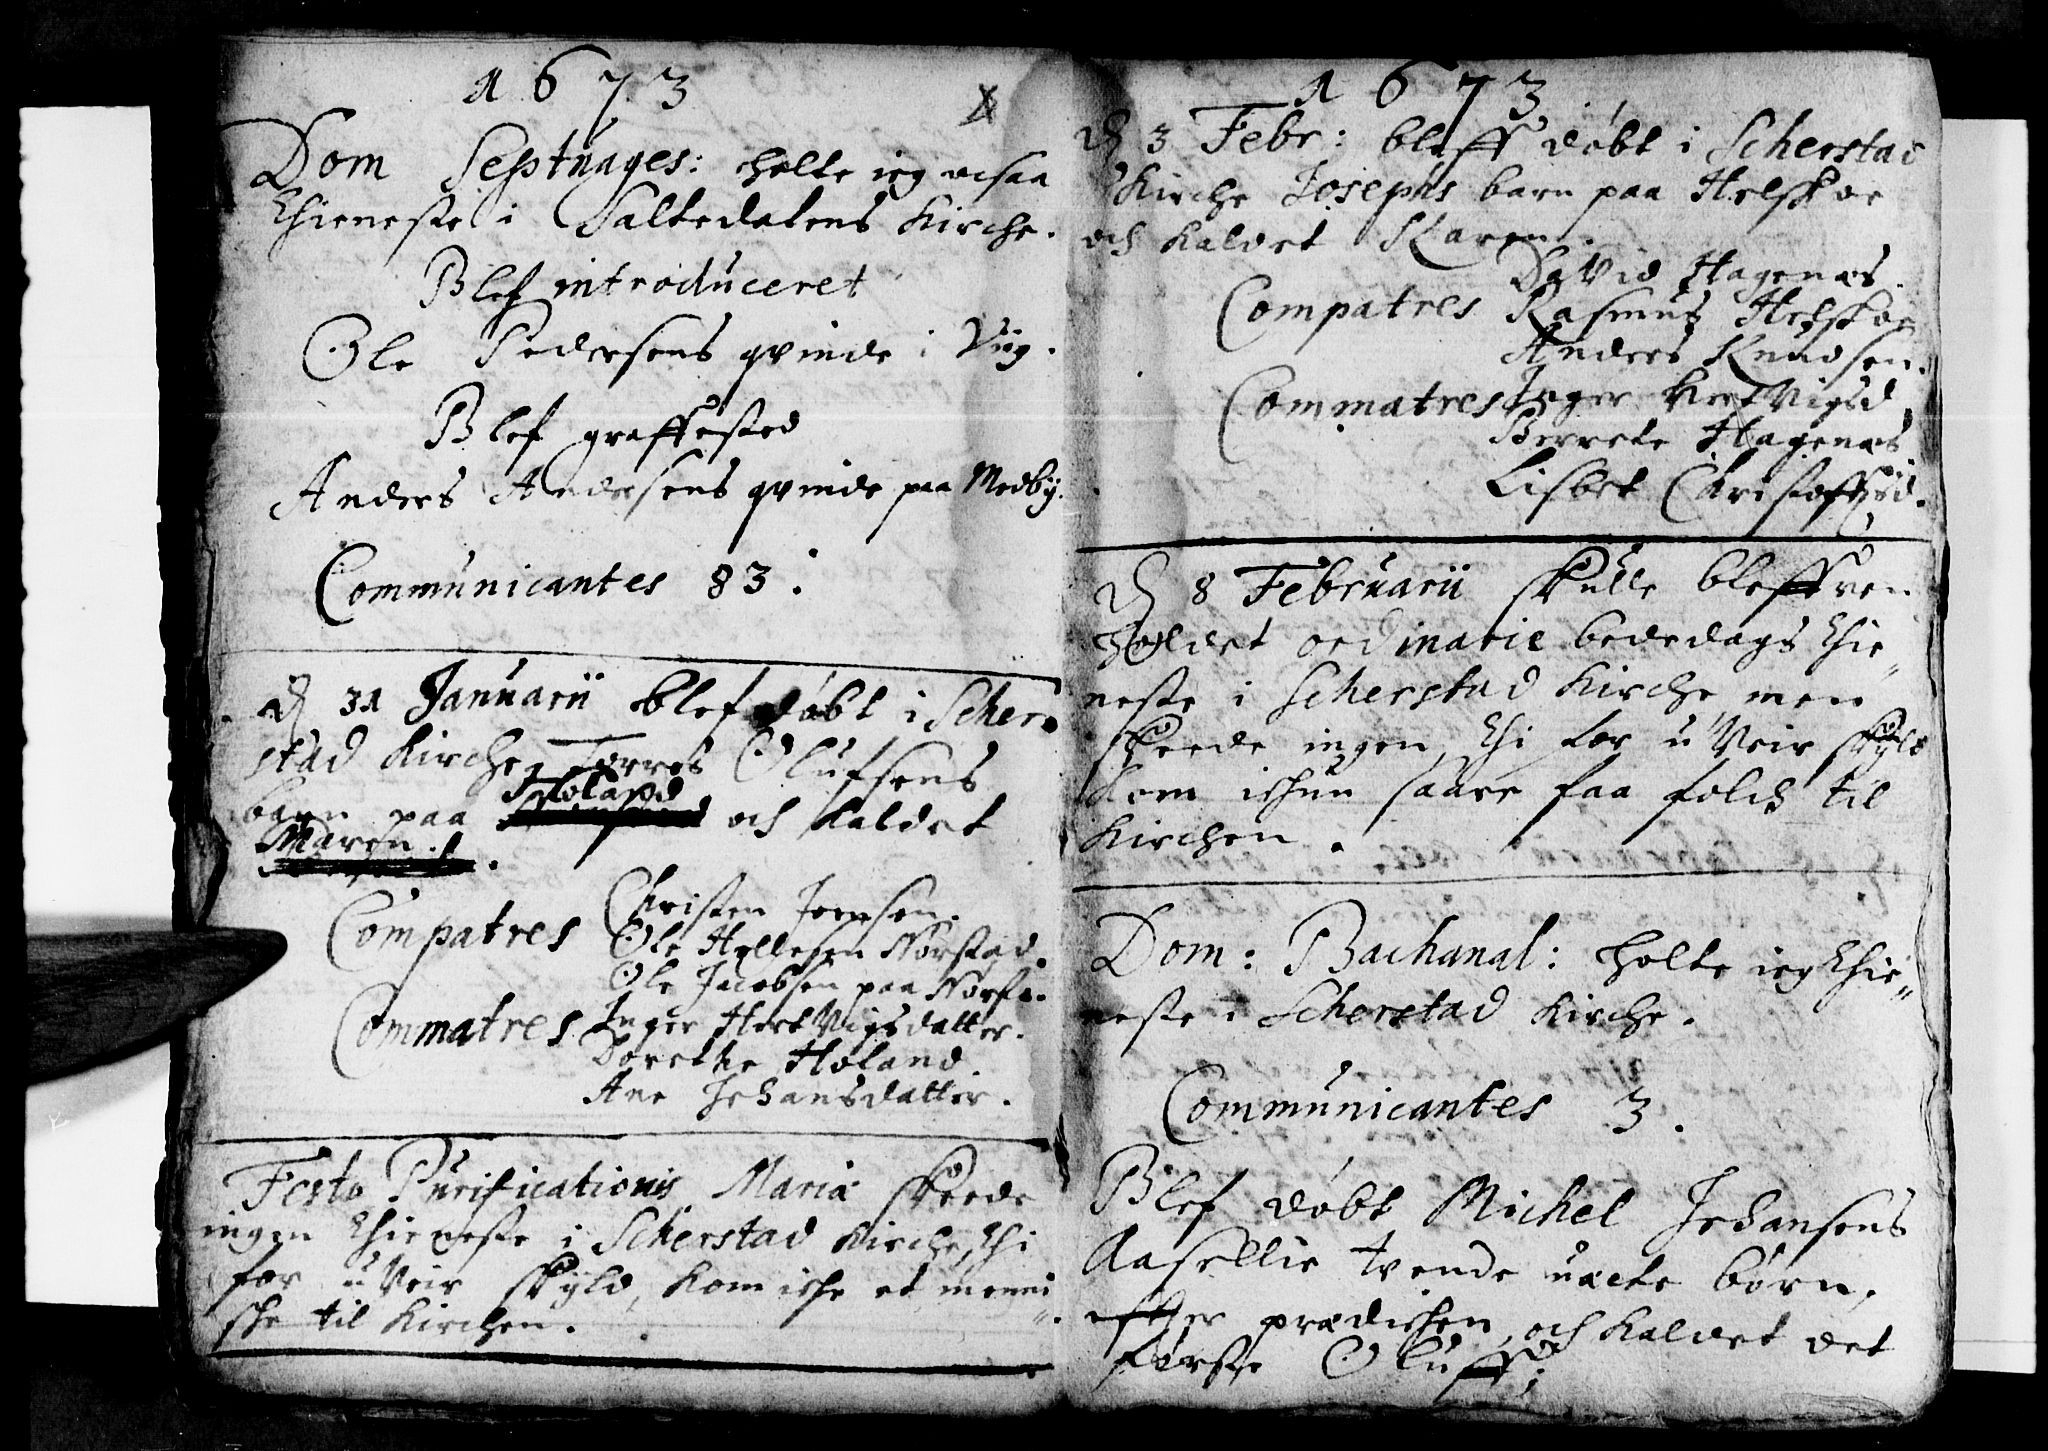 1673
Dom Septuages: holte ieg ocsaa
thieneste i Saltedalens Kirche.
Blef introduceret
Ole Pedersens qvinde i Viig.
Blef graffested
Anders Andersens qvinde paa Medby.
Communicantes 83.
D 31 Januarii blef døbt i Scher-
stad Kirche, Torres Olufsens
barn paa och kaldet
Maren.
Compatres Christen Joensen.
Ole Hellesen Norstad.
Ole Jacobsen paa
Commatres Inger HertVigsdatter.
Dorethe Høland
Ane Johansdatter.
Festo Purificationis Mariæ skeede
ingen thieneste i Scherstad Kirche, thi
for uVeir skyld, kom iche et menni
sche til Kirchen.
1673
D 3 Febr: bleff døbt i Scherstad
Kirche Josephs barn paa Helskoe
och kaldet Karen.
David Hagenæs.
Compatres Rasmus Helskoe
Anders Knudsen.
Commatres Inger HertVigsd.
Berrete Hagenæs
Lisbet
D 8 Februarii skulle bleffven
holdet ordinarie bededags thie-
neste i Scherstad Kirche, men
skeede ingen, thi for uVeir skyld
kom ichun saare faa folch til
Kirchen.
Dom: Bachanal: holte ieg thie-
neste i Scherstad Kirche.
Communicantes 3.
Blef døbt Michel Johansens
Aasellie tvende uæcte børn,
efther prædichen, och kaldet det
første Oluff;